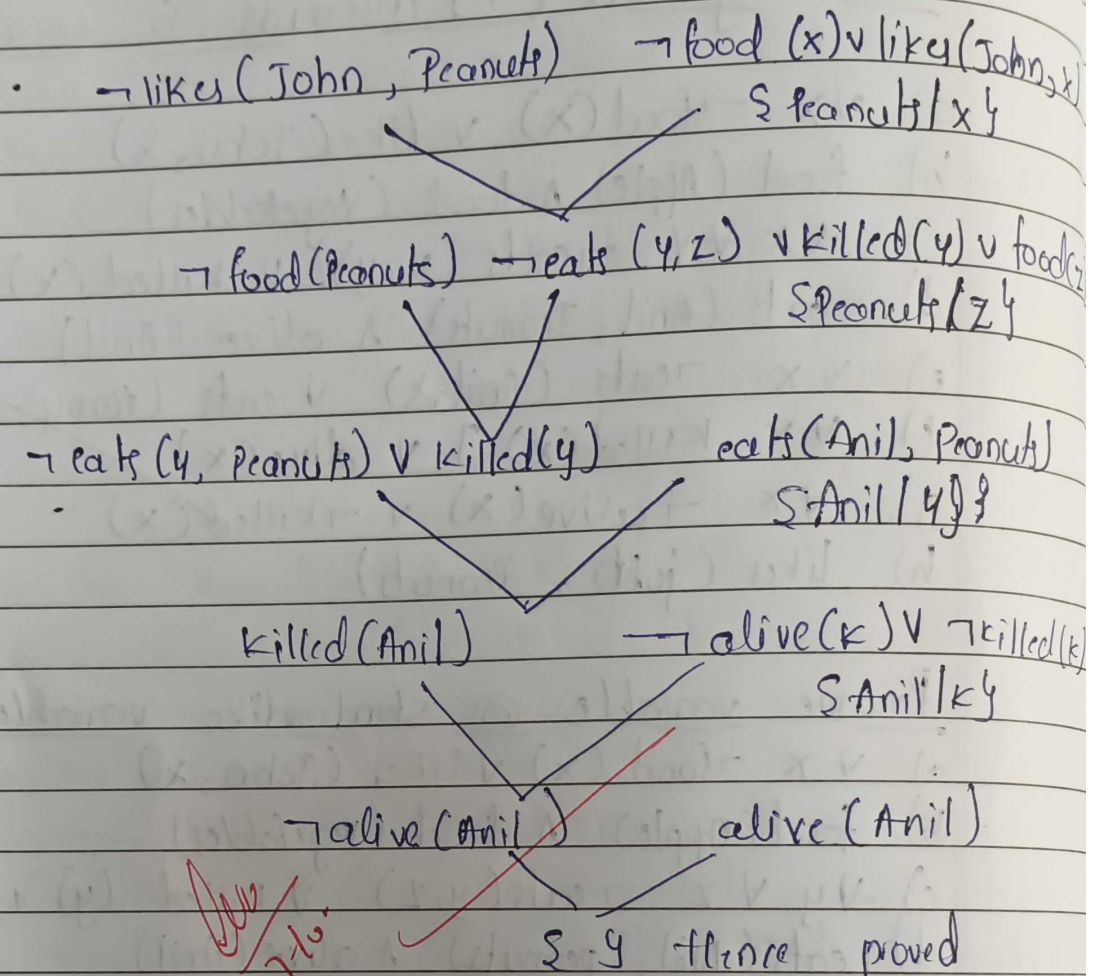 ¬ likes (John, Peanuts) ¬ food (x) ∨ likes (John, x)
{Peanuts / x}
¬ food (Peanuts) ¬ eats (y, z) ∨ killed (y) ∨ food (z
{Peanuts / z}
¬ eats (y, Peanuts) ∨ killed (y) eats (Anil, Peanuts)
{Anil / y}}
Killed (Anil) ¬ alive (k) ∨ ¬ killed (k)
{Anil / k}
¬ alive (Anil) alive (Anil)
{ } Hence proved